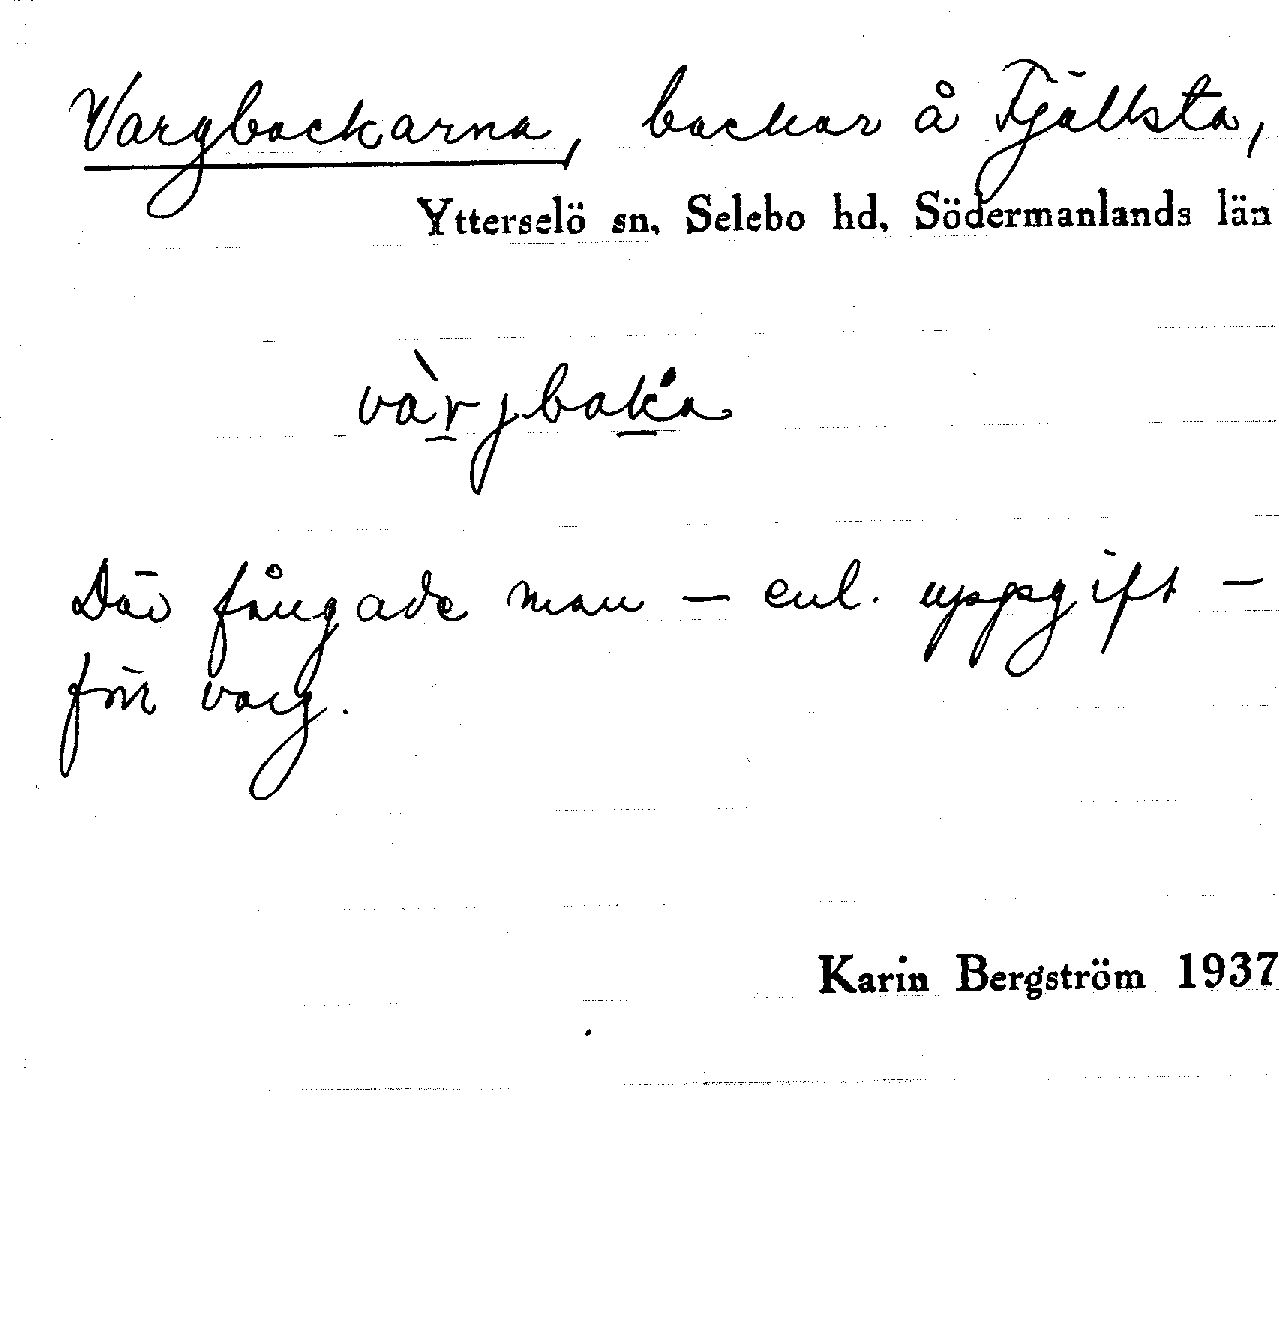 Vargbackarna, backar å Tjällsta,
Ytterselö sn, Selebo hd, Södermanlands län
vàrjbaka
Där fångade man – enl. uppgift –
förr varg.
Karin Bergström 1937